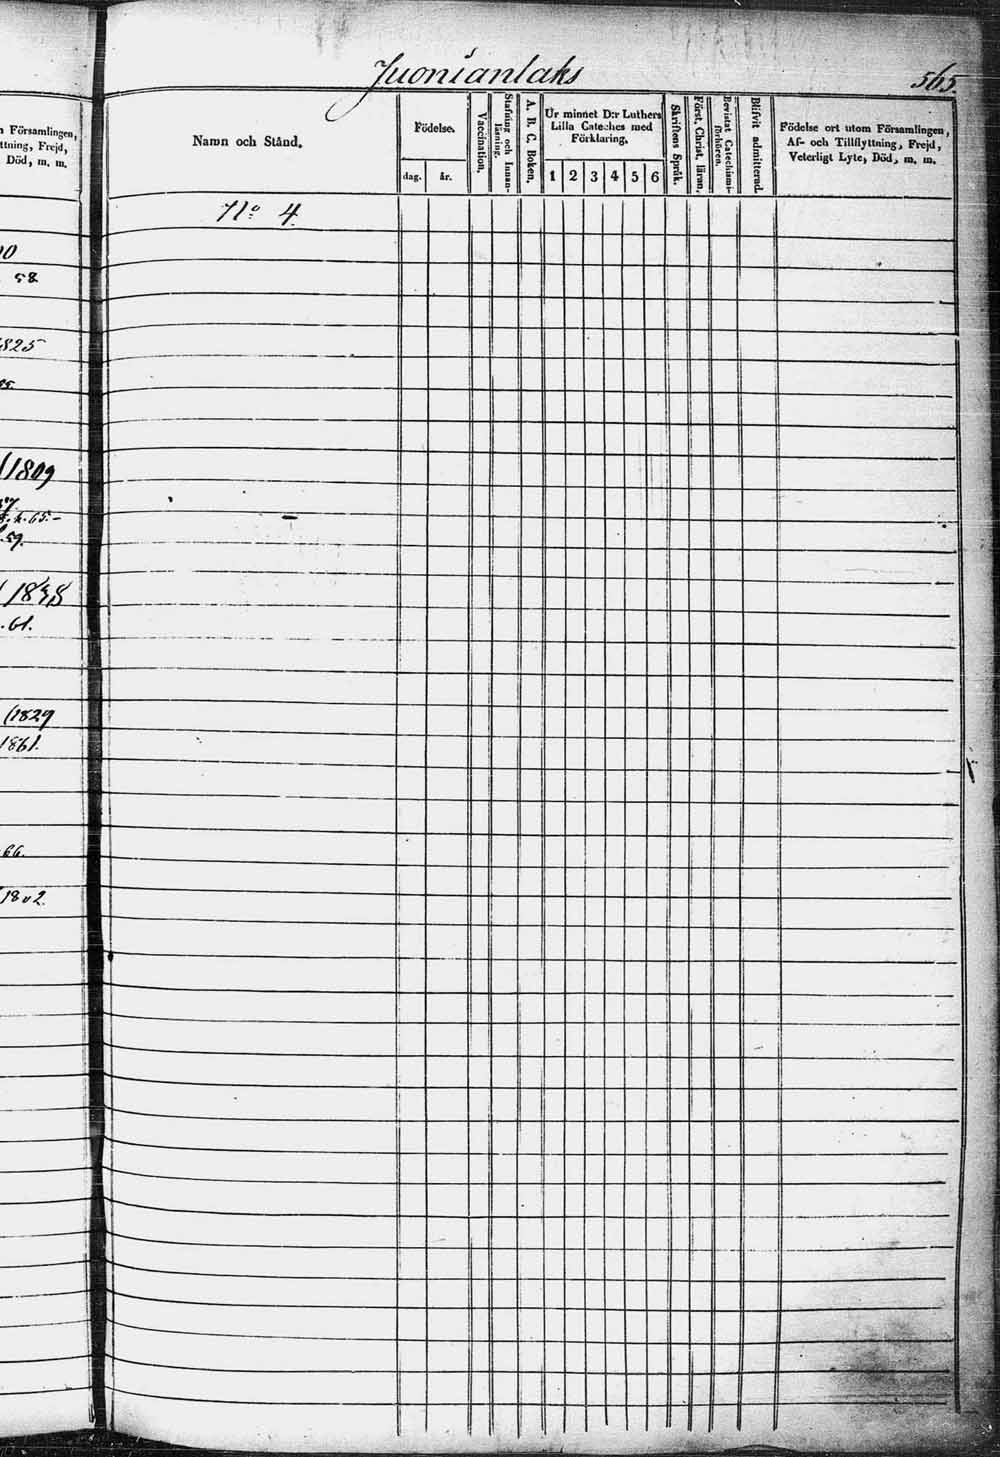 Juonianlaks
565.
n Församlingen,
ttning, Frejd,
Död, m. m.
58
1825
(1809
. 59.
/ 1838
. 61.
(1829
1861.
66.
1802.
Namn och Stånd.
Födelse.
dag. år.
Vaccination.
Stafning och Innan-
läsning.
A. B. C. Boken.
Ur minnet D:r Luthers
Lilla Cateches med
Förklaring.
1 2 3 4 5 6
Skriftens Språk.
Först. Christ. läran.
Bevistat Catechismi-
förhören.
Blifvit admitterad.
Födelse ort utom Församlingen,
Af- och Tillflyttning, Frejd,
Veterligt Lyte, Död, m. m.
No 4.